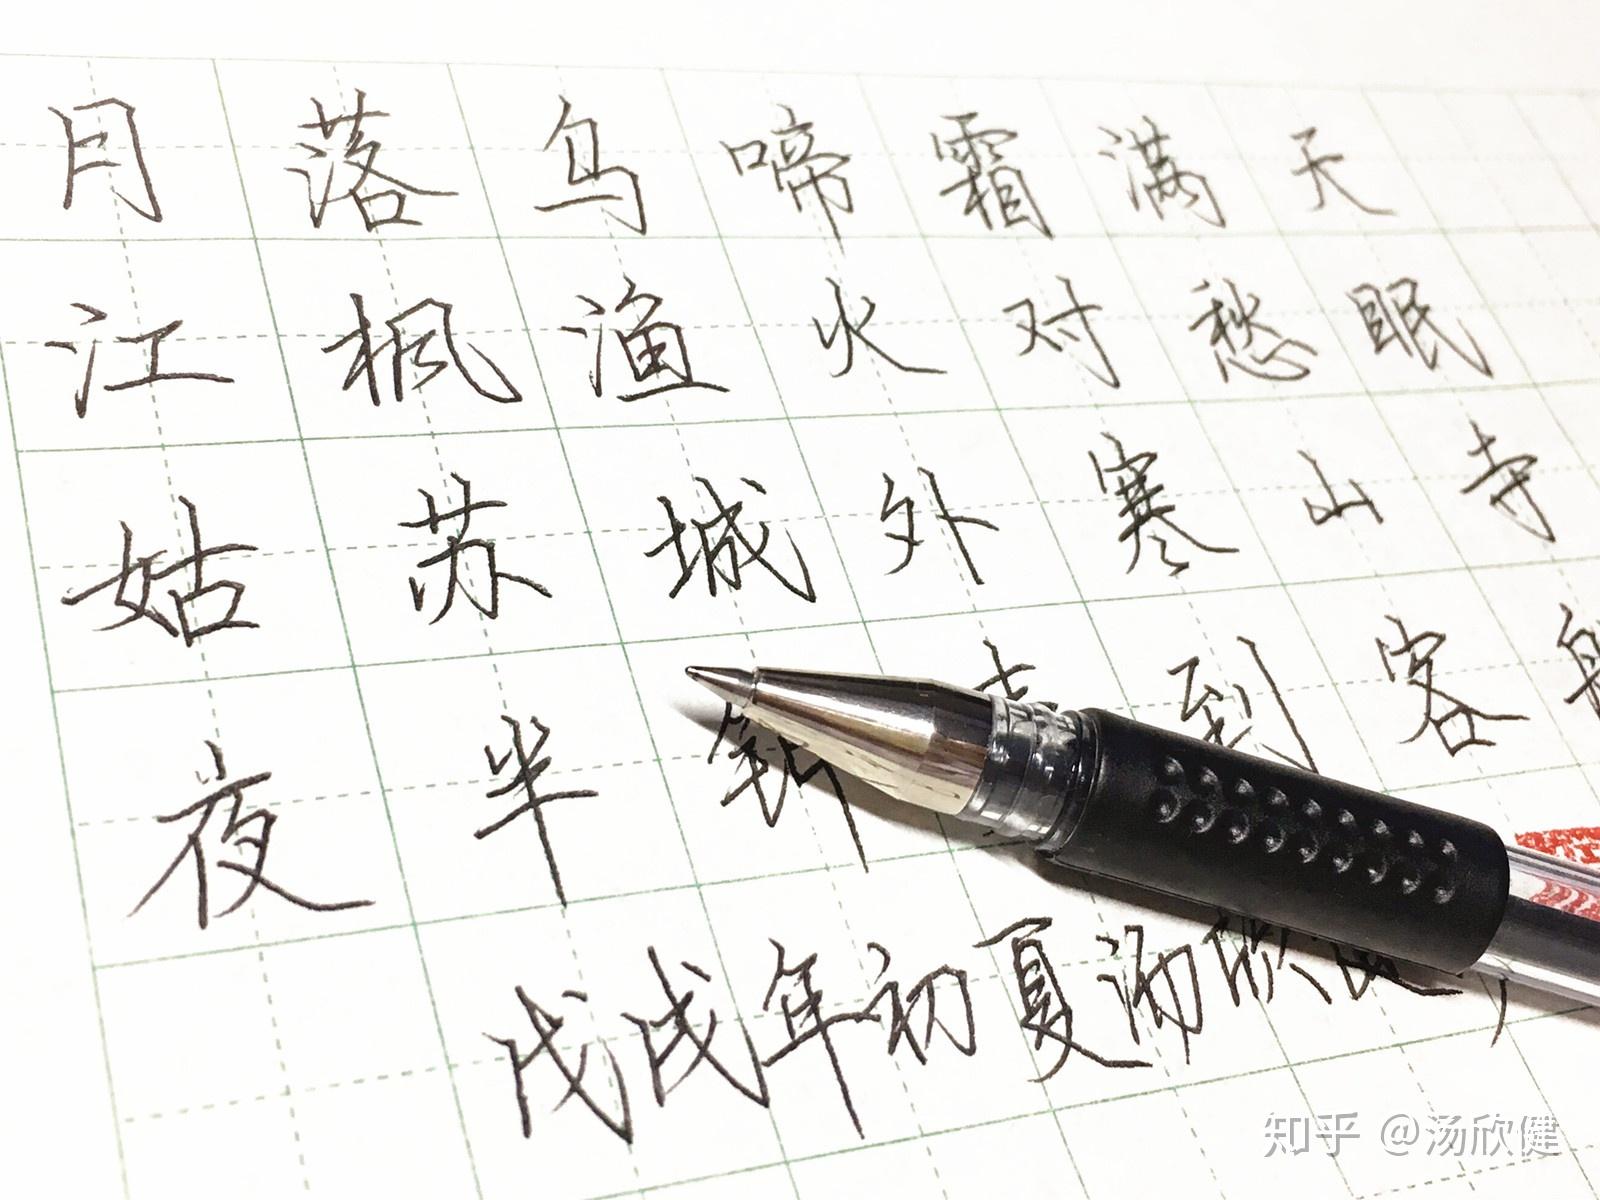 月落乌啼霜满天
江枫渔火对愁眠
姑苏城外寒山寺
夜半到客
戊戌年初夏汤欣
知乎 @汤欣健